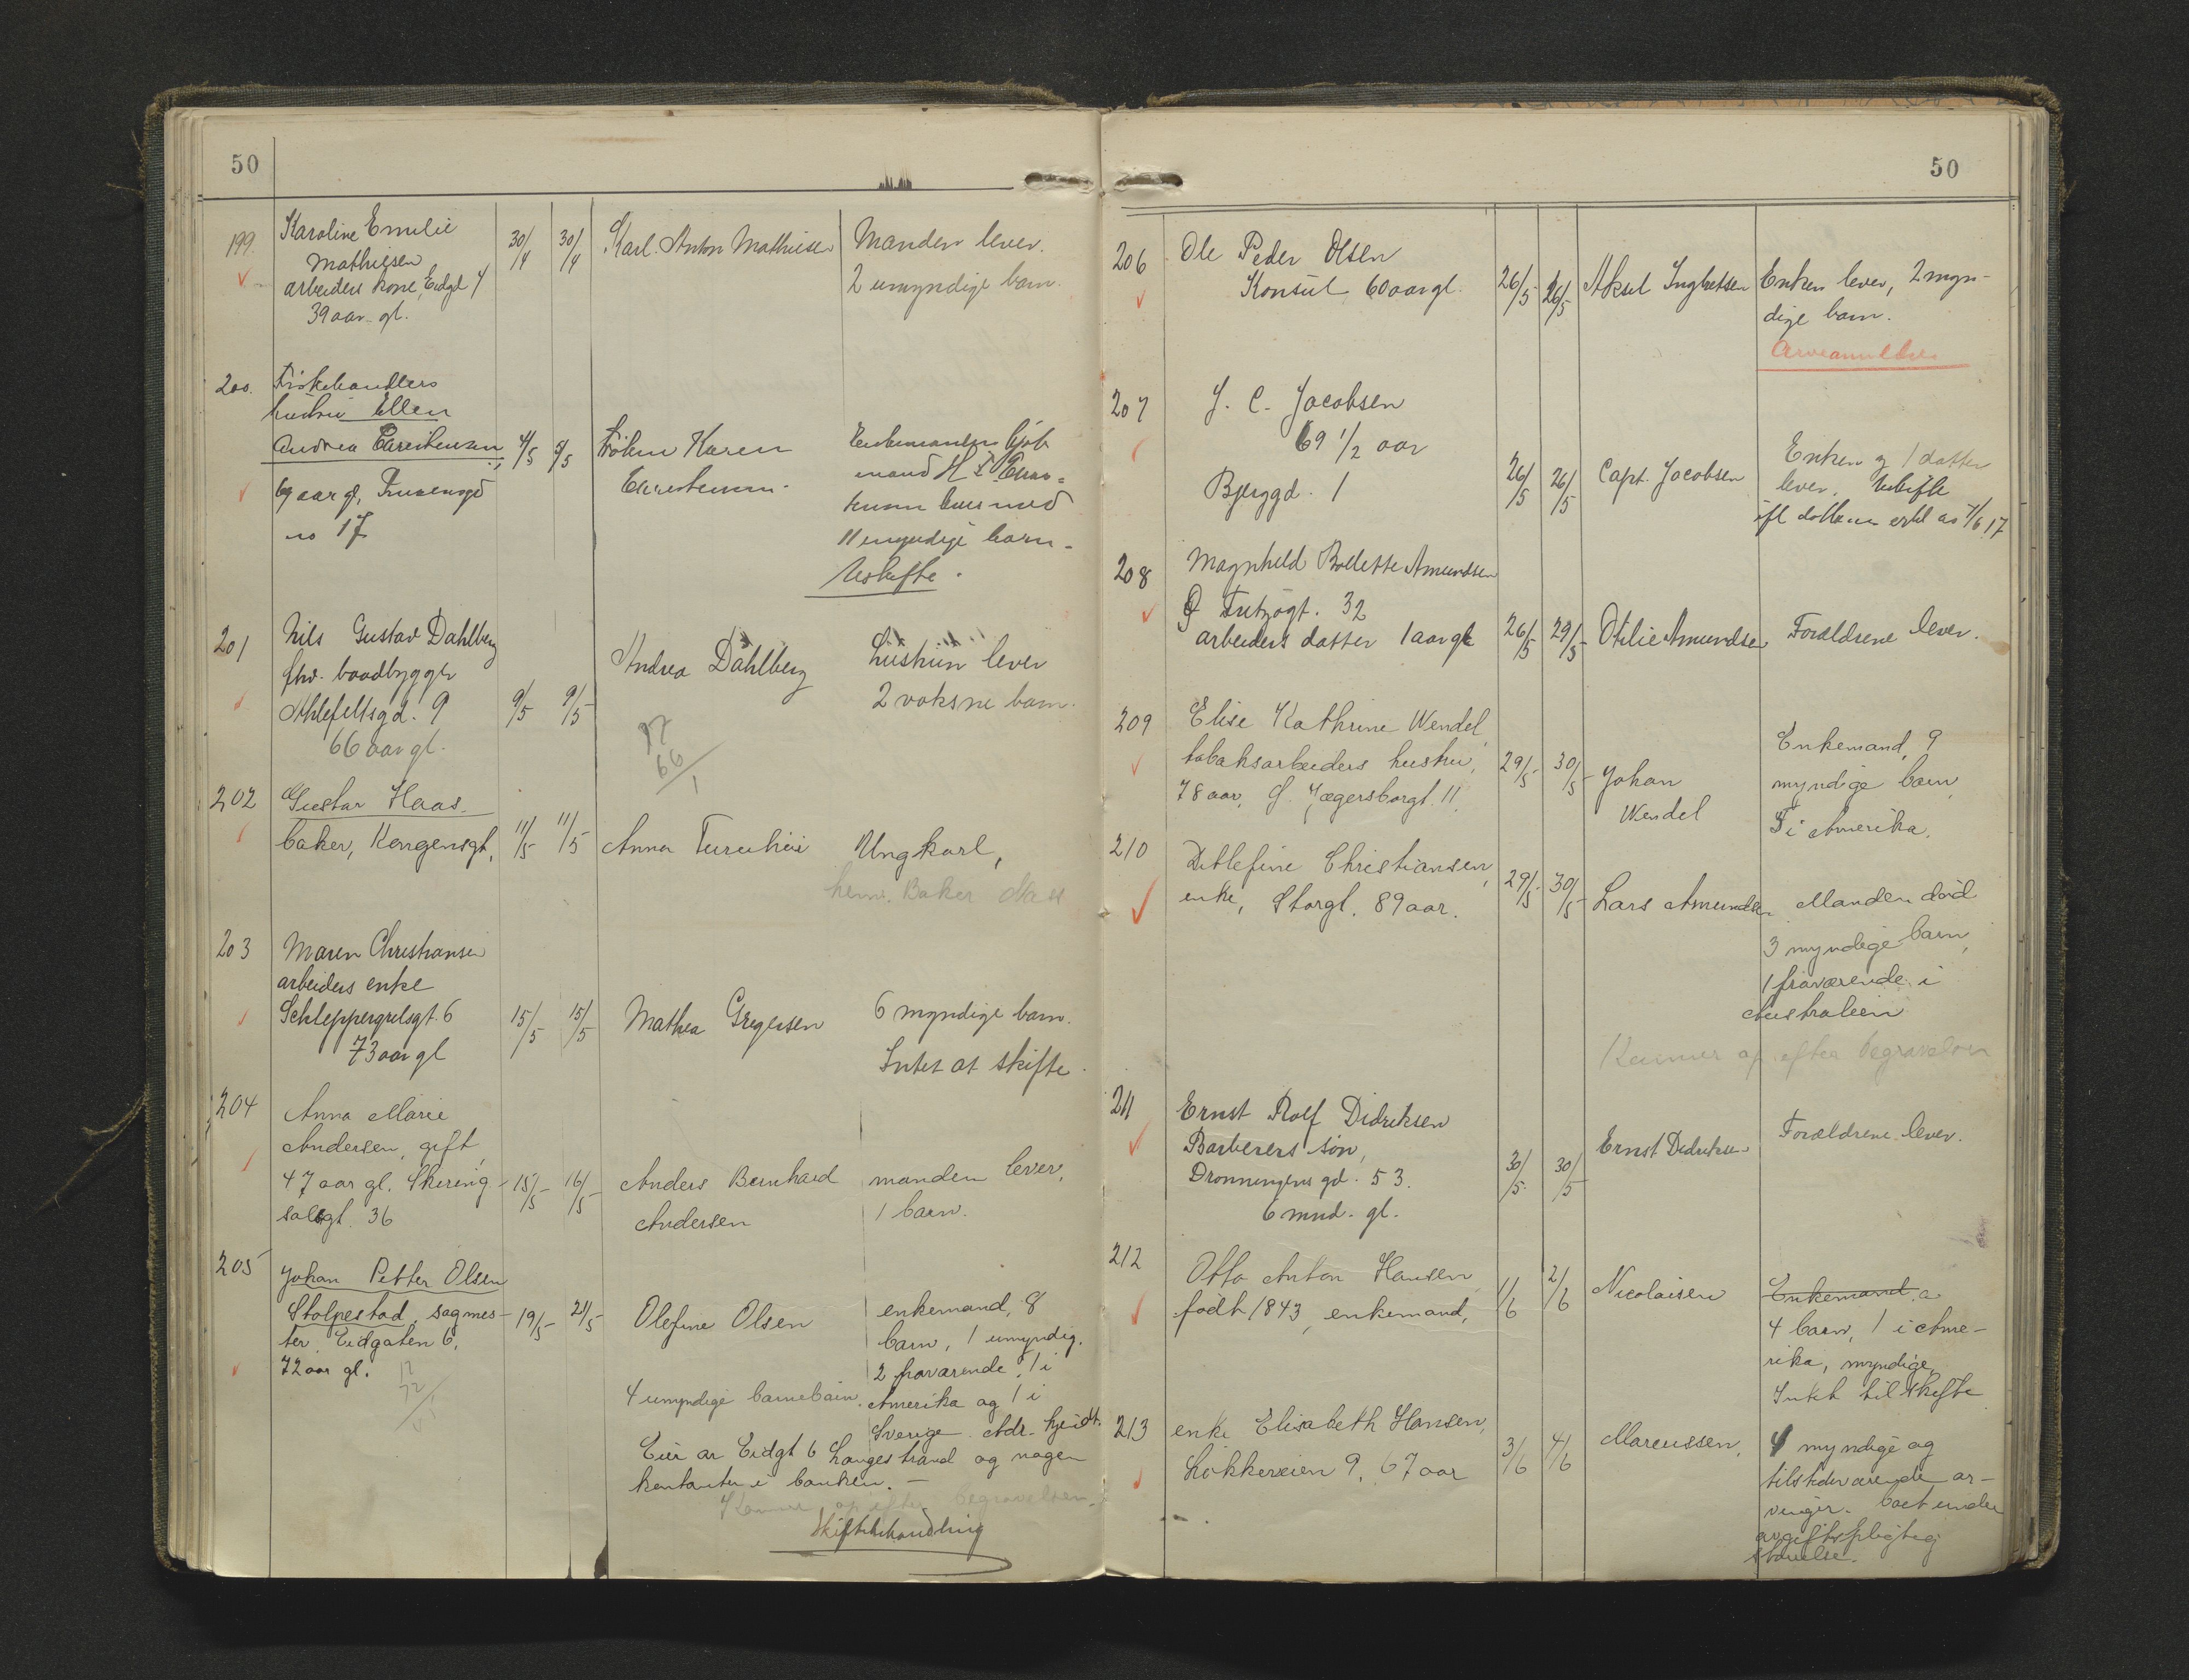 50
199. Karoline Emilie
Mathiesen
arbeiders kone, Eidgt 4
39 aar gl.
30/4 30/4 Karl. Anton Mathiesen
Manden lever.
2 umyndige barn.
200. Fiskehandlers
hustru Ellen
Andrea
69 aar gl,
no 17
4/5 5/5 Frøken Karen
Enkemanden
mand H
med
11 umyndige barn -
Uskifte.
201 Nils Gustav Dahlberg
fhv. baadbygger
Ahlefeltsgd. 9
66 aar gl.
9/5 9/5 Andrea Dahlberg
hustru lever
2 voksne barn.
66/1
202 Gustav Haas
baker, Kongensgt,
11/5 11/5 Anna
Ungkarl,
henv. Baker Haas
203 Maren Christiansen
arbeiders enke
Schleppegrelsgt. 6
73 aar gl
15/5 15/5 Mathea Gregersen
6 myndige barn.
Intet at skifte.
204 Anna Marie
Andersen, gift,
47 aar gl. Skering-
salsgt. 36
15/5 16/5 Anders Bernhard
Andersen
manden lever,
1 barn.
205 Johan Petter Olsen
Stolpestad, sagmes-
ter. Eidgaten 6,
72 aar gl.
19/5 21/5 Olefine Olsen
enkemand, 8
barn, 1 umyndig.
2 fraværende, 1 i
Amerika og 1 i
Sverige. Adr.
4 umyndige barnebarn.
Eier av Eidgt 6 Langestrand og nogen
kontanter i banken. -
Kommer op efter begravelsen.
Skiftebehandling
50
206 Ole Peder Olsen
Konsul 60 aar gl.
26/5 26/5 Aksel Ingbretsen
Enken lever, 2 myn-
dige barn.
Arveanmeldes
207 J. C. Jacobsen
69 1/2 aar
Bjerggd. 1
26/5 26/5 Capt. Jacobsen
Enken og 1 datter
lever. Uskifte
ifl datteren erkl av 7/6 17
208 Magnhild Bollette Amundsen
Fritzøgt. 32
arbeiders datter 1 aar gl
26/5 29/5 Otilie Amundsen
Forældrene lever.
209 Elise Kathrine Wendel,
tobaksarbeiders hustru,
78 aar, G. Jægersborgt. 11.
29/5 30/5 Johan
Wendel
Enkemand, 9
myndige barn,
5 i Amerika.
210 Ditlefine Christiansen,
enke, Storgt. 89 aar.
29/5 30/5 Lars Amundsen
Manden død
3 myndige barn,
1 fraværende i
Australien
Kommer op efter begravelsen
211 Ernst Rolf Didriksen
Barberers søn,
Dronningens gd. 53.
6 mnd. gl.
30/5 30/5 Ernst Didriksen
Forældrene lever.
212 Otto Anton Hansen
født 1843, enkemand,
1/6 2/6 Nicolaisen
Enkemand.
4 barn, 1 i Ame-
rika, myndige,
Intet til skifte
213 enke Elisabeth Hansen,
Løkkeveien 9, 67 aar
3/6 4/6 Marcussen,
4 myndige og
tilstedeværende ar-
vinger. boet under
avgiftspligtig
størrelse.